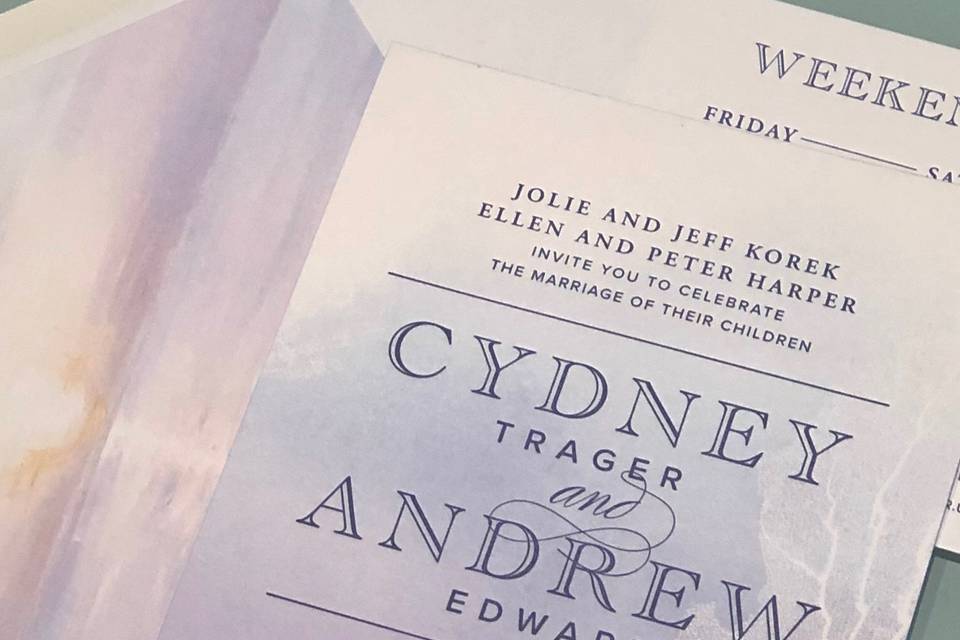 WEEKEN
FRIDAY
JOLIE AND JEFF KOREK
ELLEN AND PETER HARPER
INVITE YOU TO CELEBRATE
THE MARRIAGE OF THEIR CHILDREN
CYDNEY
TRAGER
and
ANDREW
EDWAR